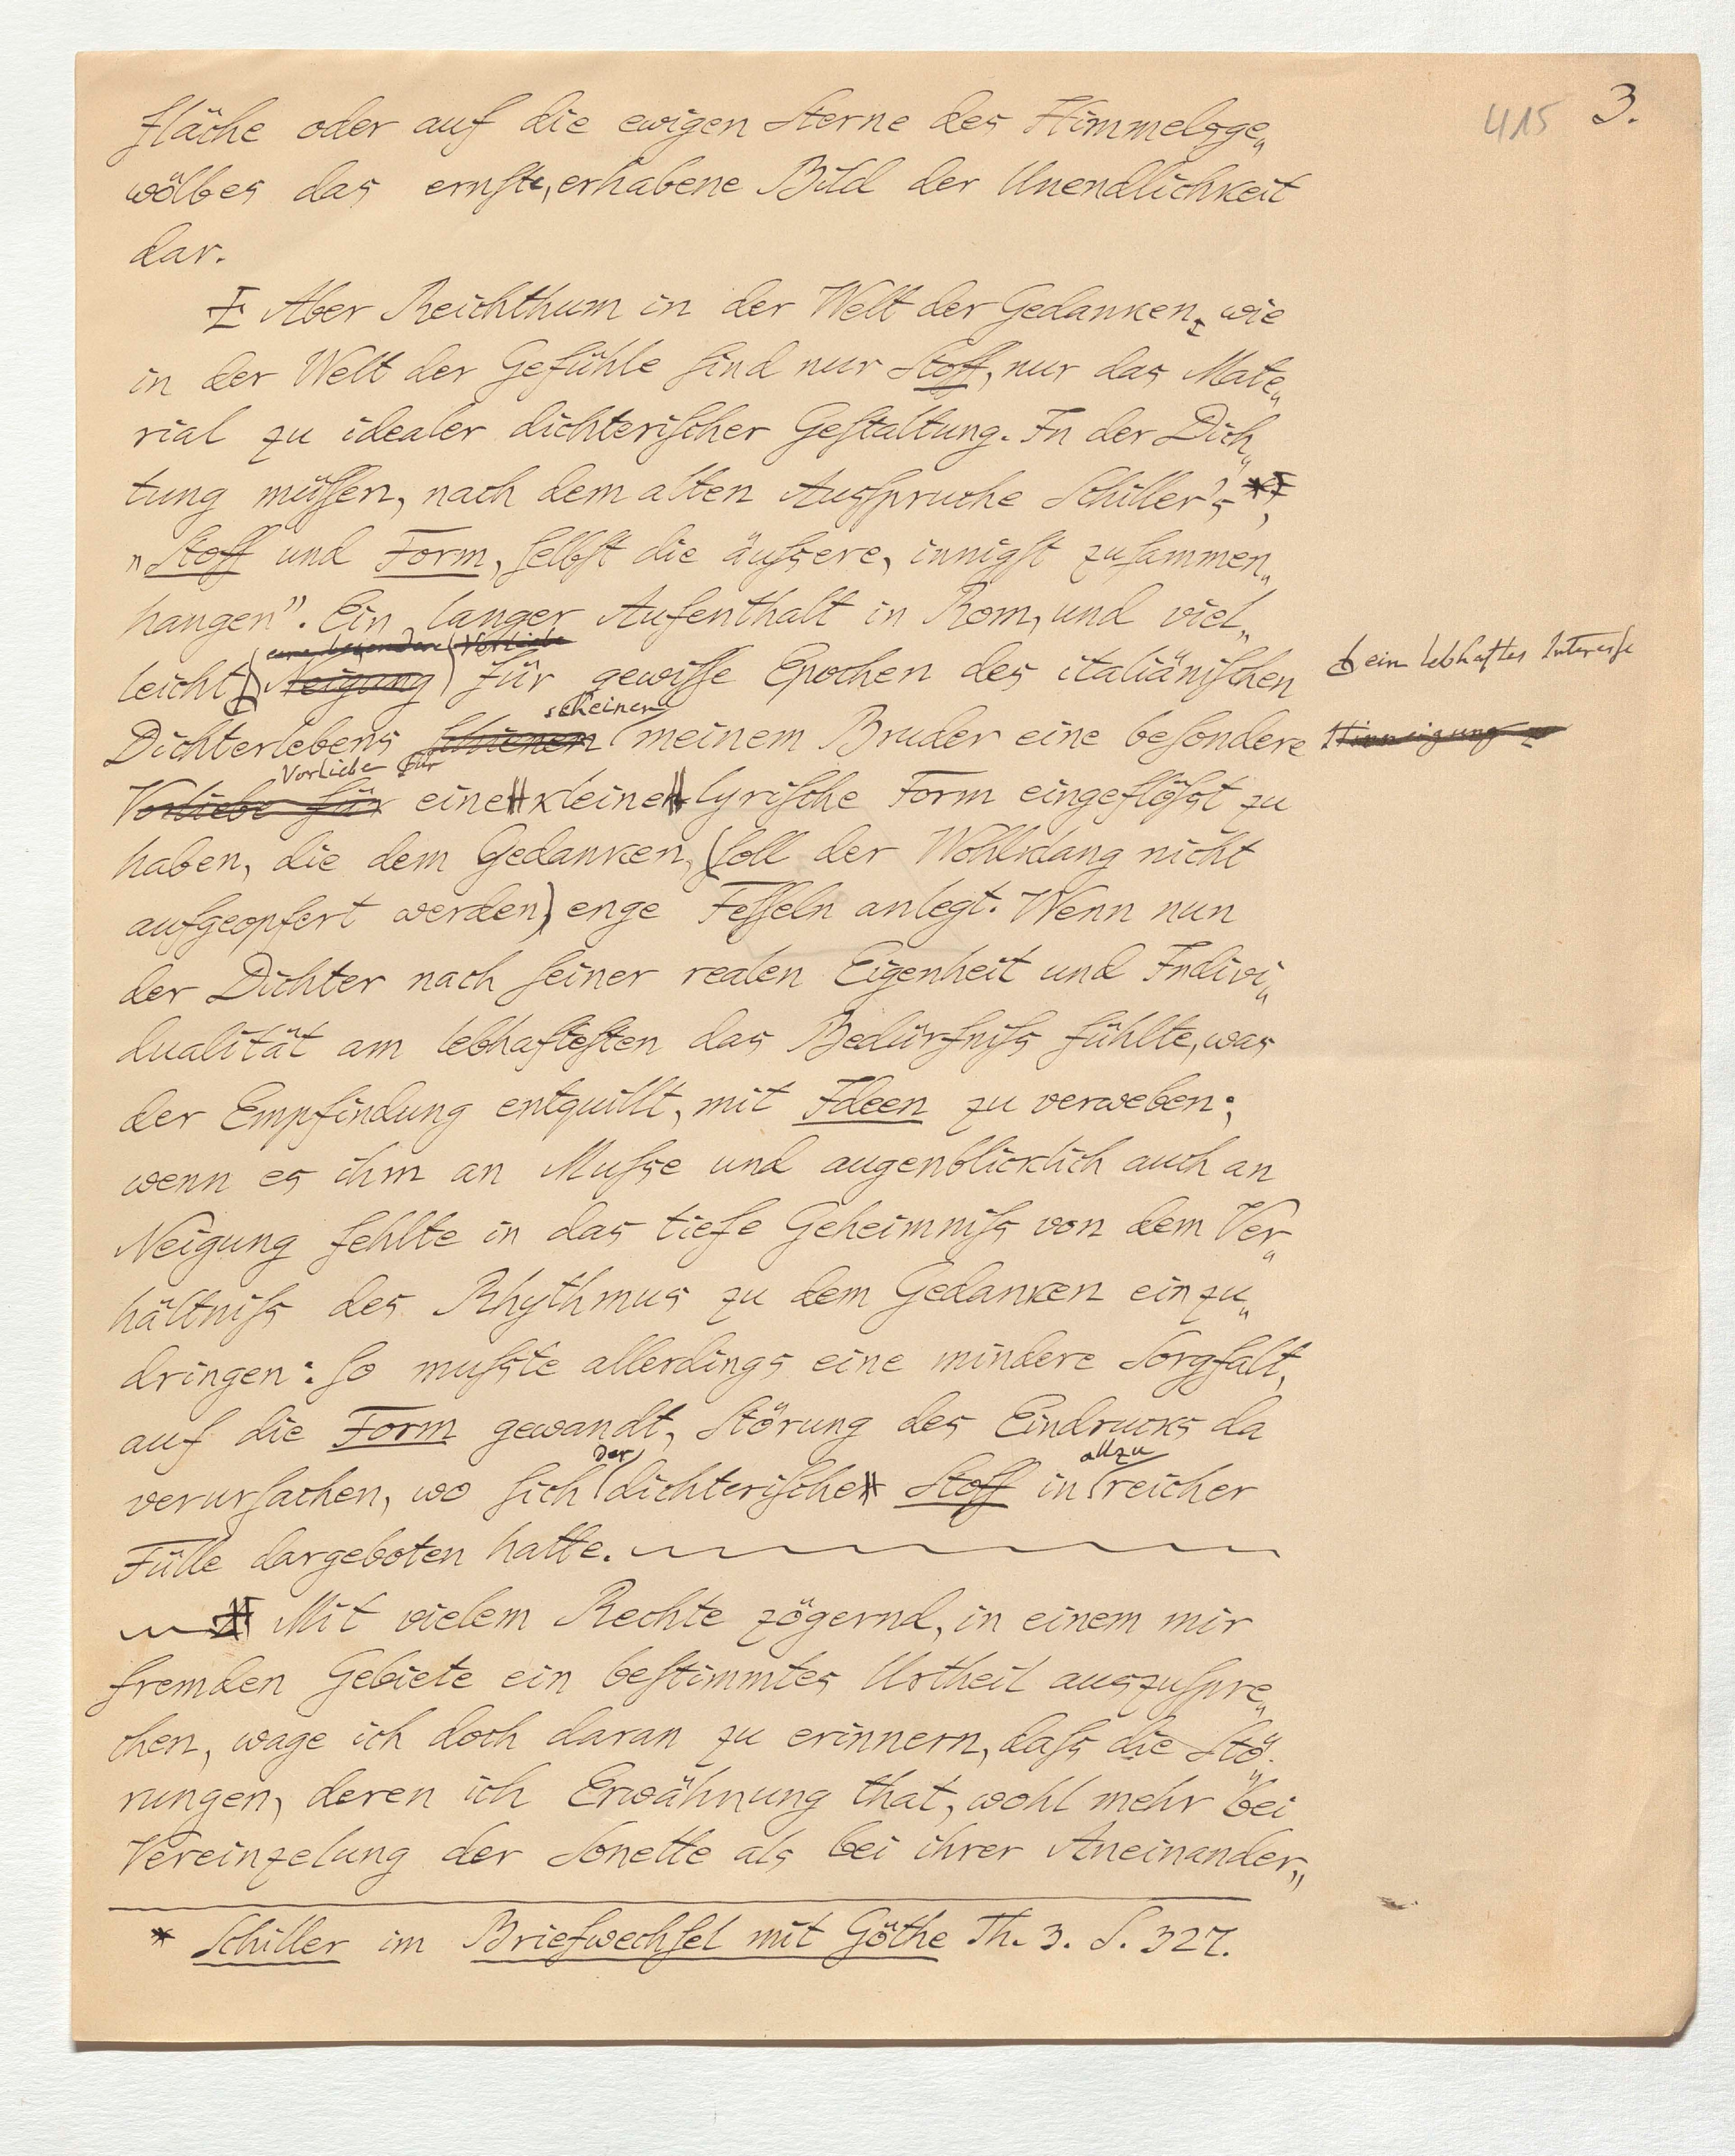 415 3.
fläche oder auf die ewigen Sterne des Himmelsge„
wölbes das ernste, erhabene Bild der Unendlichkeit
dar.
Aber Reichthum in der Welt der Gedanken, wie
in der Welt der Gefühle sind nur Stoff, nur das Mate„
rial zu idealer dichterischer Gestaltung. In der Dich„
tung müssen, nach dem alten Ausspruche Schiller's *),
„Stoff und Form, selbst die äussere, innigst zusammen„
hangen". Ein langer Aufenthalt in Rom, und viel„
eine besondere Vorliebe
leicht Neigung für gewisse Epochen des italiänischen ein lebhaftes Interesse
scheinen
Dichterlebens schienen meinem Bruder eine besondere Hinneigung zu
Vorliebe für
Vorliebe für eine kleine lyrische Form eingeflösst zu
haben, die dem Gedanken, (soll der Wohlklang nicht
aufgeopfert werden) enge Fesseln anlegt. Wenn nun
der Dichter nach seiner realen Eigenheit und Indivi„
dualität am lebhaftesten das Bedürfniss fühlte, was
der Empfindung entquillt, mit Ideen zu verweben;
wenn es ihm an Musse und augenblicklich auch an
Neigung fehlte in das tiefe Geheimniss von dem Ver„
hältniss des Rhythmus zu dem Gedanken einzu„
dringen: so musste allerdings eine mindere Sorgfalt,
auf die Form gewandt, Störung des Eindrucks da
der allzu
verursachen, wo sich dichterische Stoff in reicher
Fülle dargeboten hatte.
Mit vielem Rechte zögernd, in einem mir
fremden Gebiete ein bestimmtes Urtheil auszuspre„
chen, wage ich doch daran zu erinnern, dass die Stö„
rungen, deren ich Erwähnung that, wohl mehr bei
Vereinzelung der Sonette als bei ihrer Aneinander„
* Schiller im Briefwechsel mit Göthe Th. 3. S. 327.